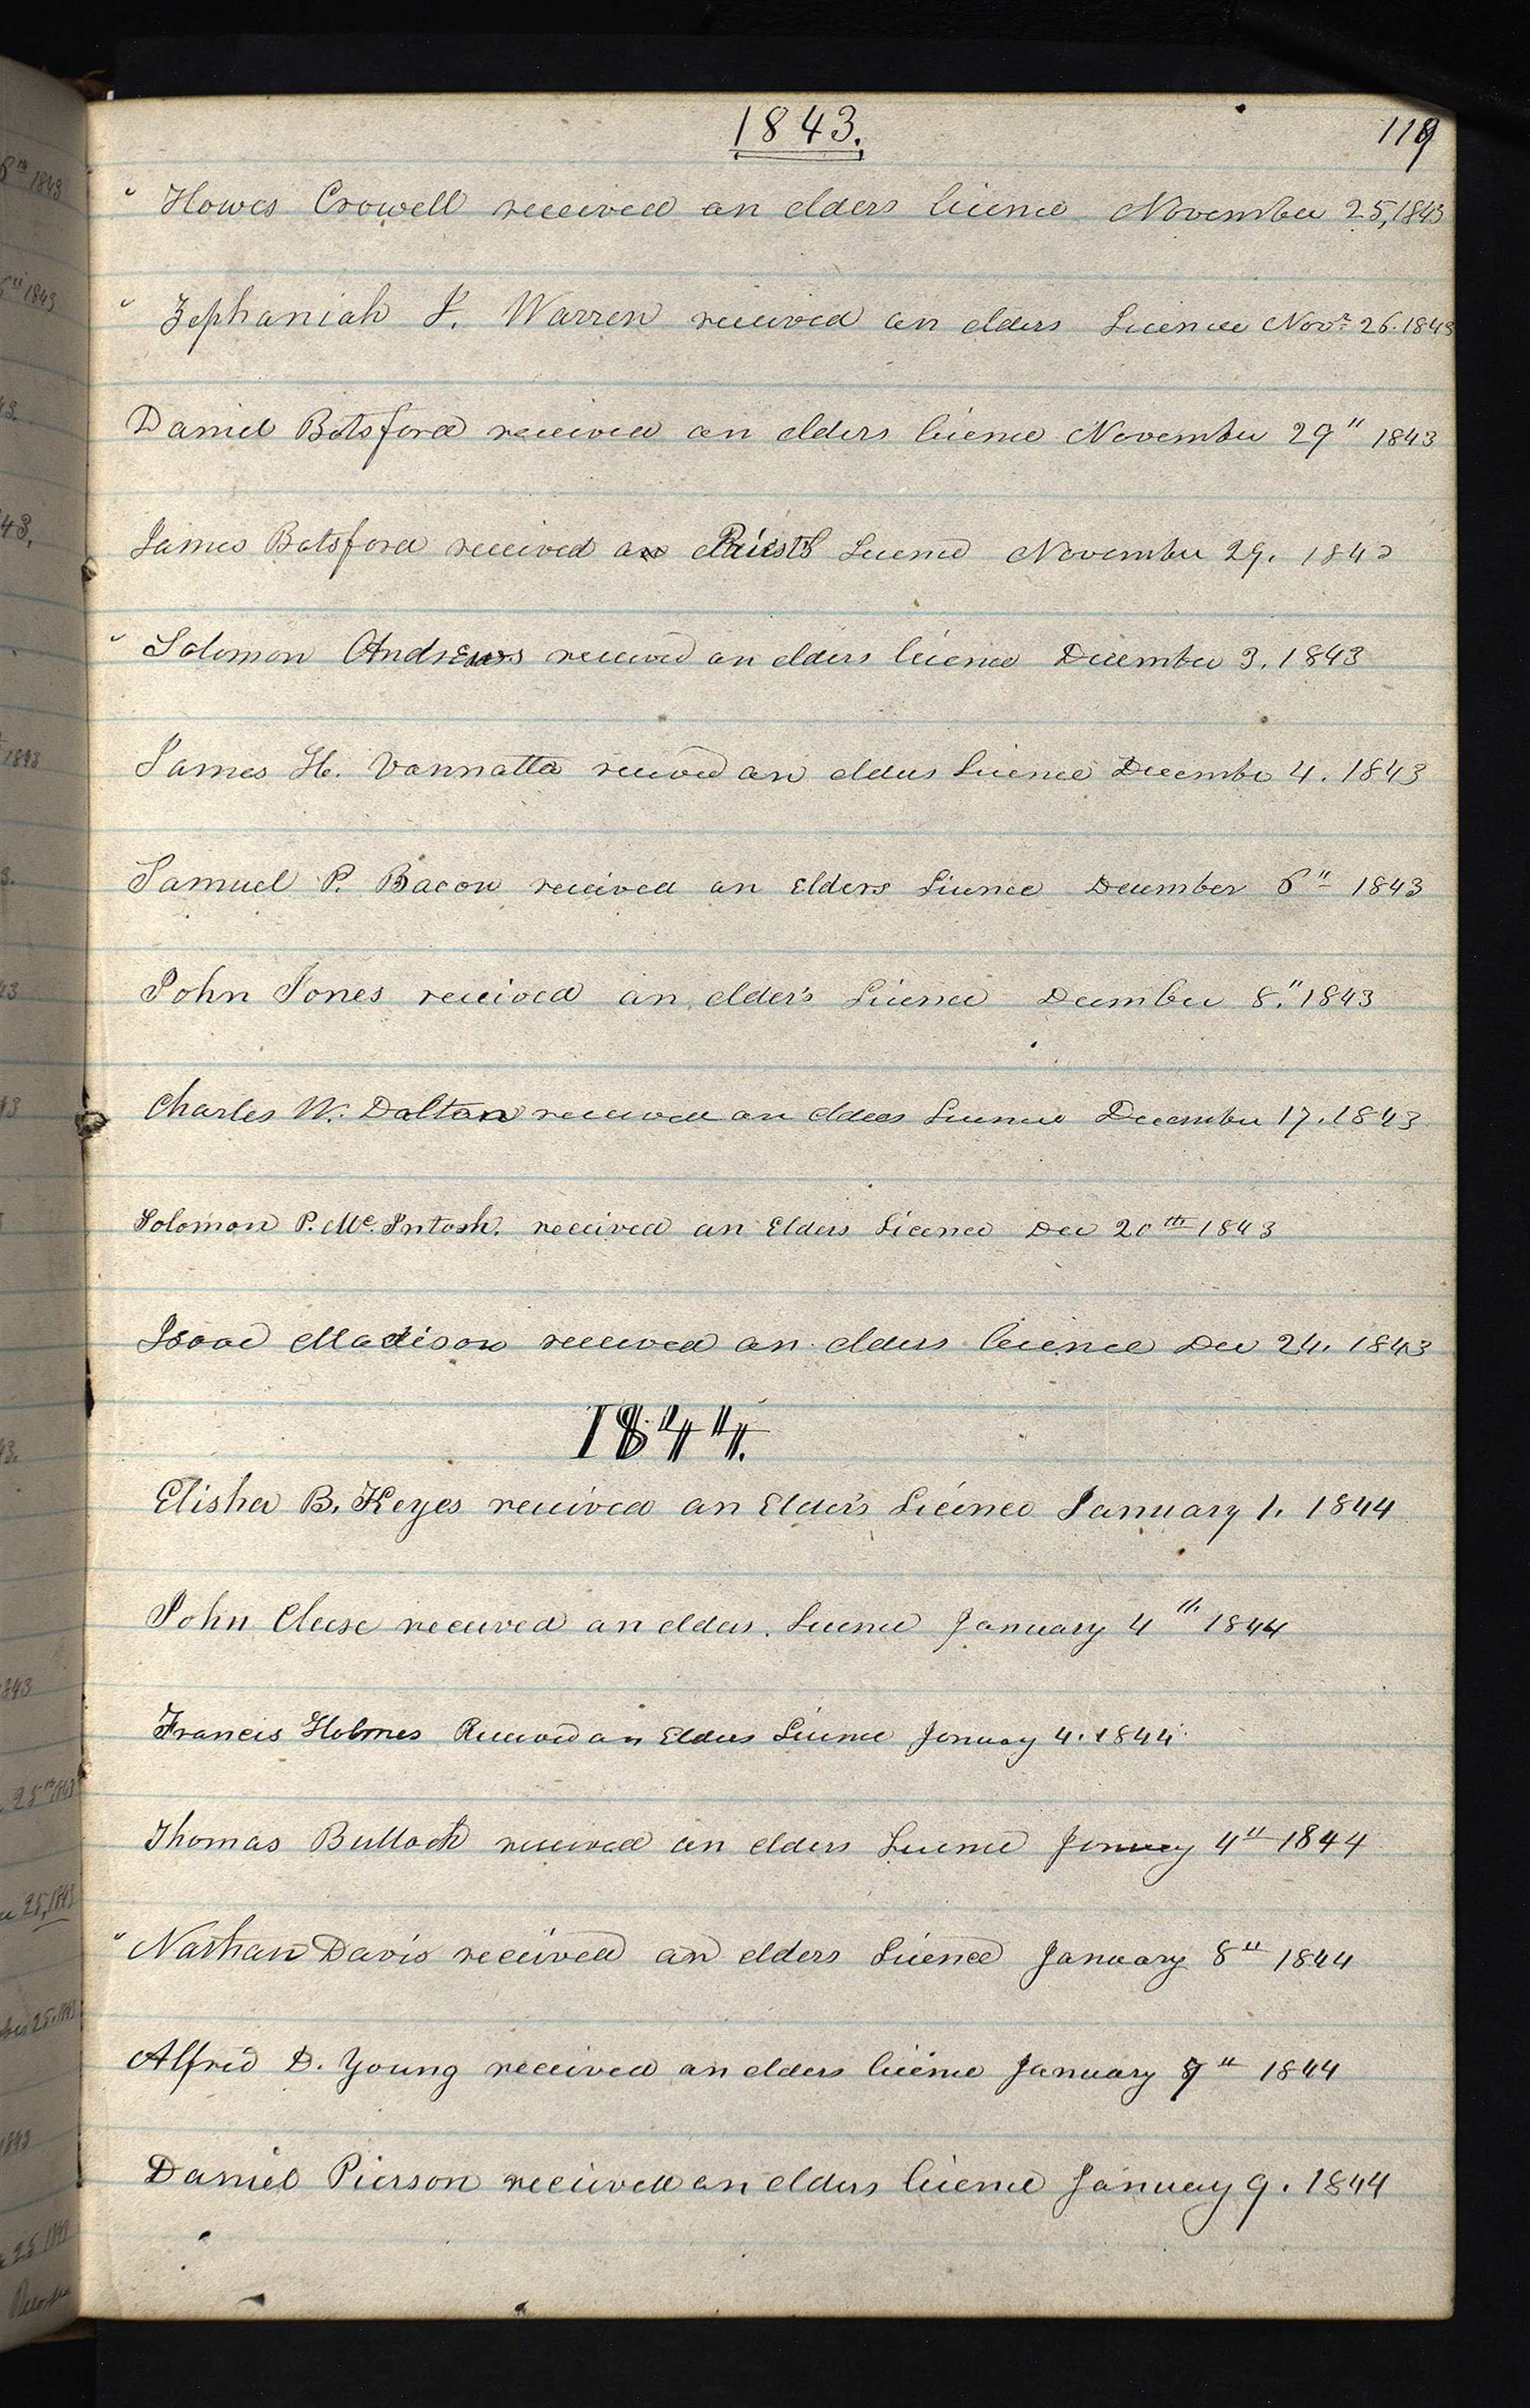 1843.
119
Howes Crowell received an elders licence November 25, 1843
Zephaniah J. Warren received an elders Licence Novr 26. 1843
Daniel Botsford received an elders licence November 29" 1843
James Botsford received a Priests Licence November 29. 1843
Solomon Andrews received an elders licence December 3. 1843
James H. Vannatta received an elders Licence December 4. 1843
Samuel P. Bacon received an Elders Licence December 6" 1843
John Jones received an elder's Licence December 8." 1843
Charles W. Dalton received an elders Licence December 17. 1843
Solomon P. Mc. Intosh. received an Elders Licence Dec 20th 1843
Isaac Madison received an elders licence Dec 24. 1843
1844.
Elisha B. Keyes received an Elder's Licence January 1. 1844
John Cleese received an elders. Licence January 4th 1844
Francis Holmes Received an Elders Licence January 4. 1844
Thomas Bullock received an elders Licence January 4" 1844
Nathan Davis received an elders Licence January 8" 1844
Alfred D. Young received an elders licence January 9" 1844
Daniel Pierson received an elders licence January 9. 1844